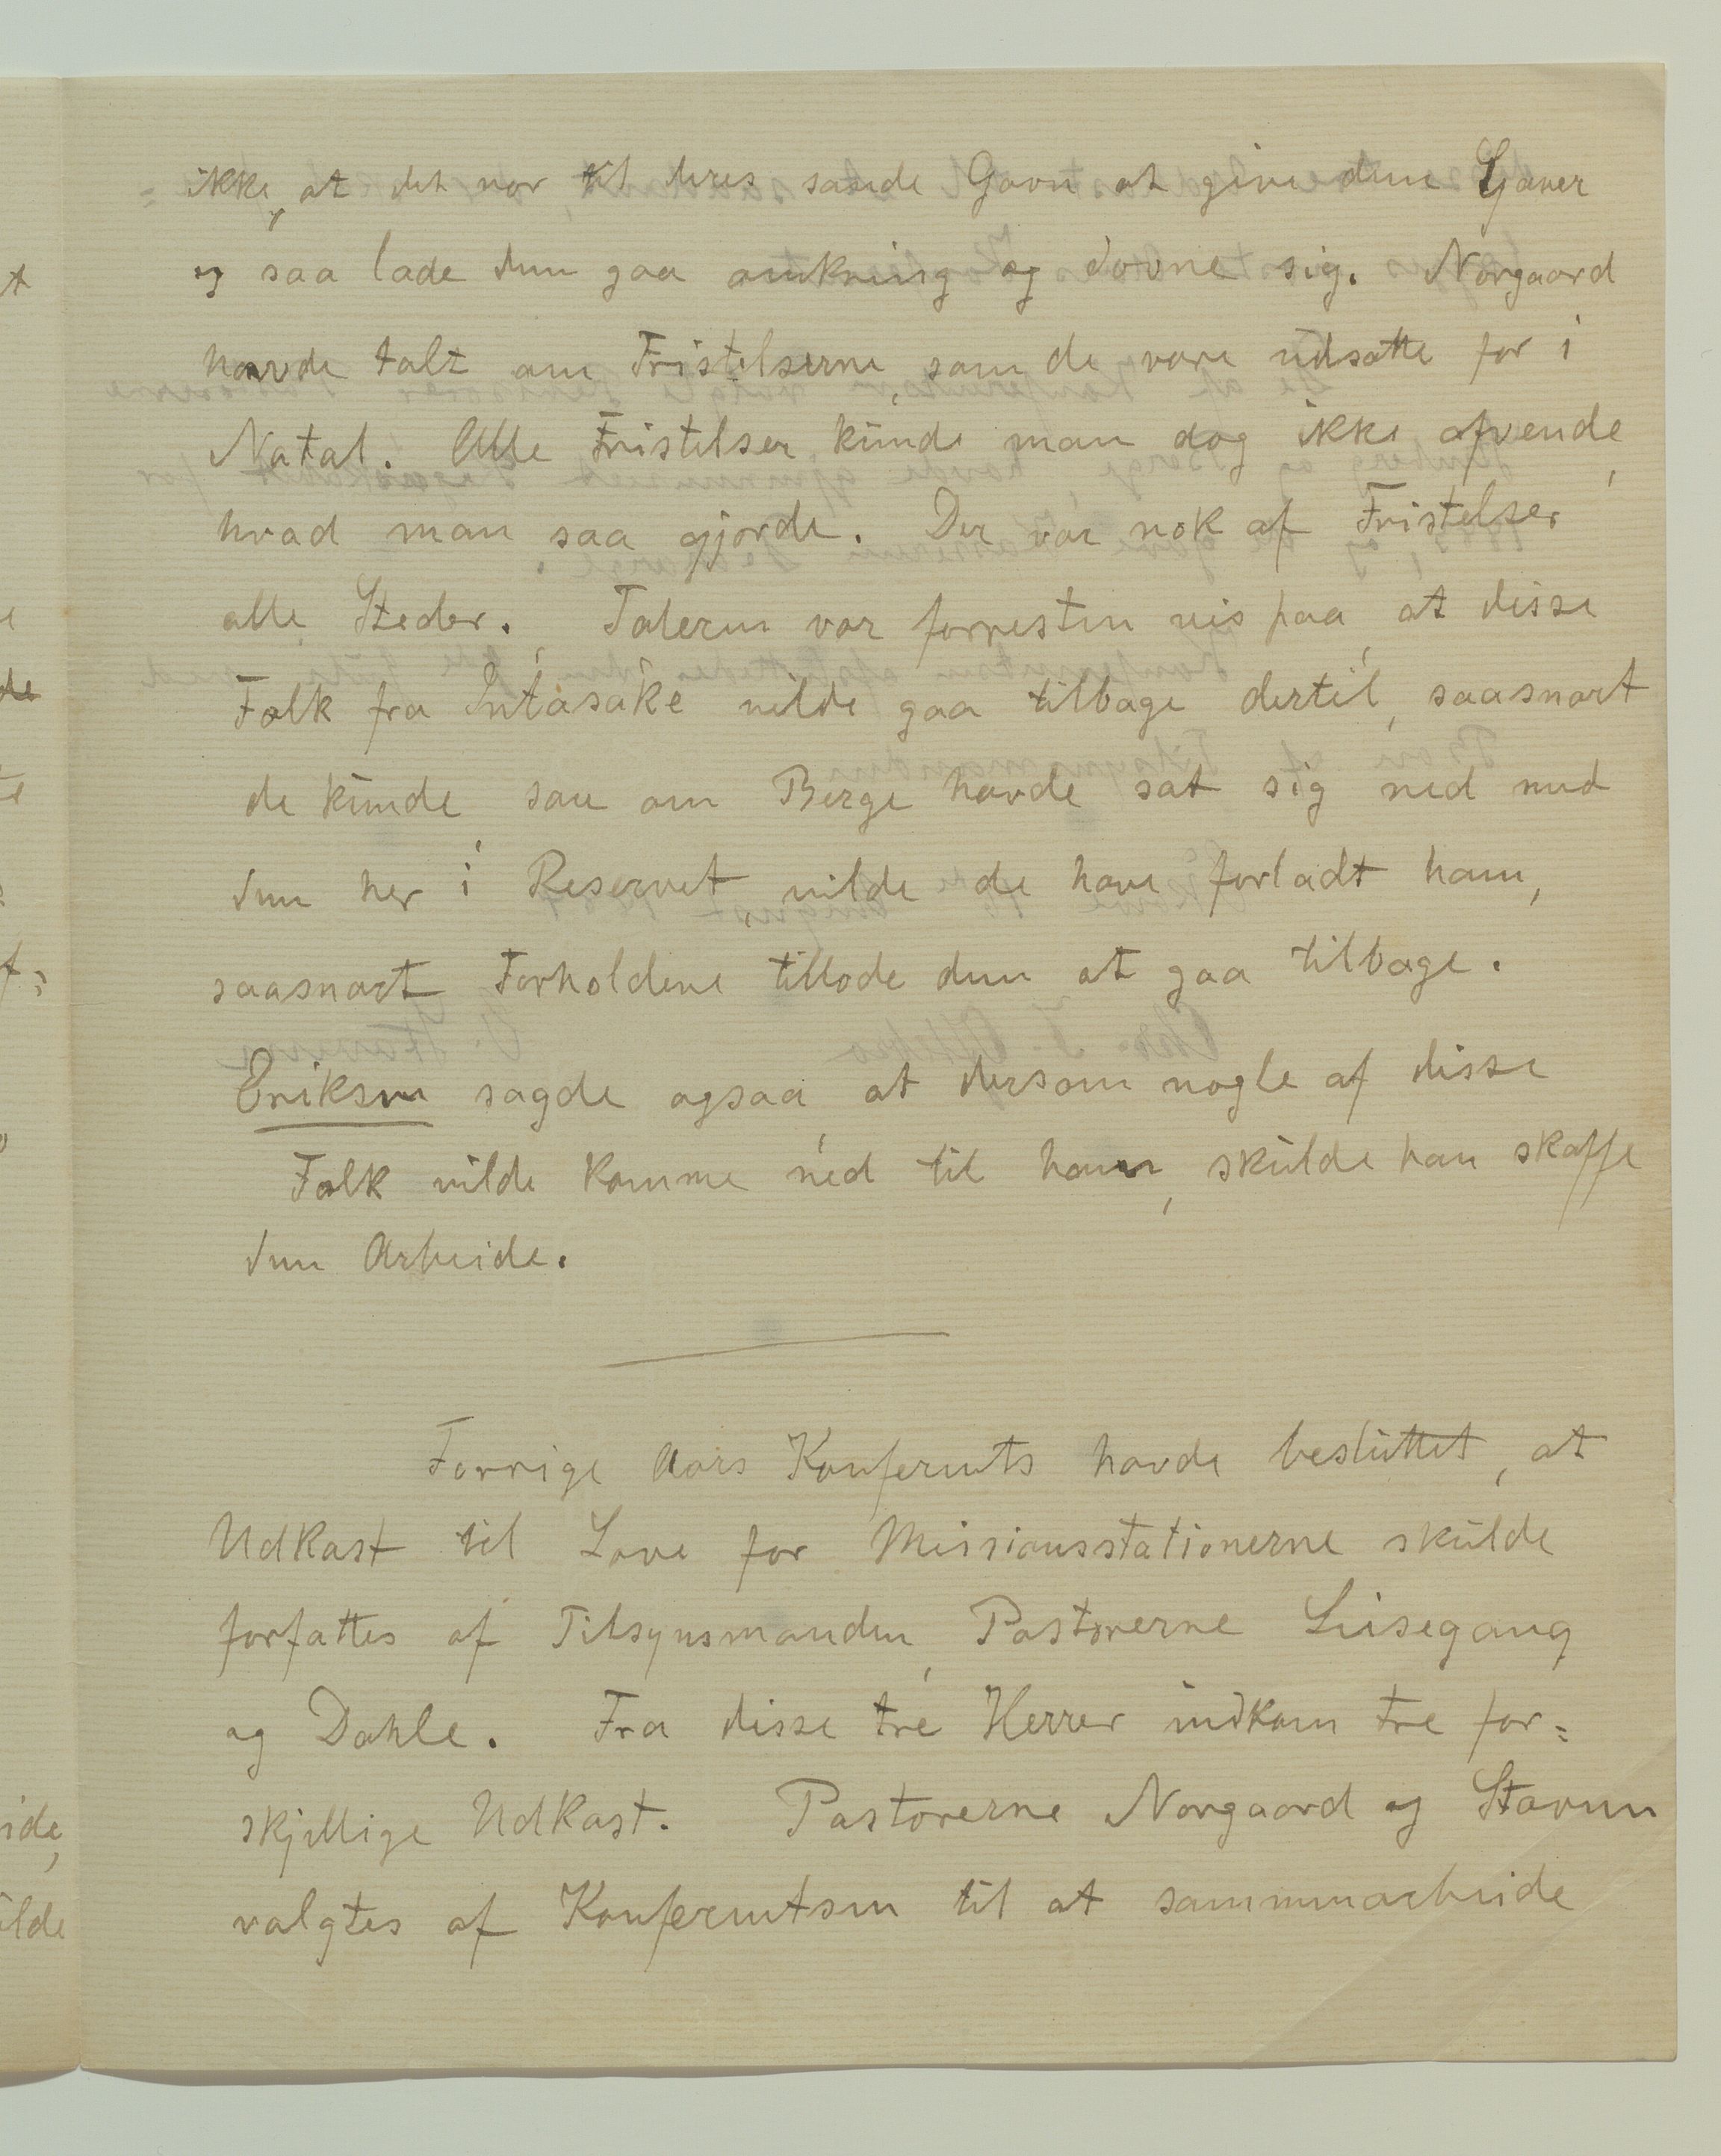 ikke, at det var til deres sande Gavn at give dem Gaver
og saa lade dem gaa omkring og dovne sig. Norgaard
havde talt om Fristelserne, som de vare udsatte for i
Natal. Alle Fristelser kunde man dog ikke afvende,
hvad man saa gjorde. Der var nok af Fristelser
alle Steder. Taleren var forresten vis paa, at disse
Folk fra Intasake vilde gaa tilbage dertil, saasnart
de kunde saa om Berge havde sat sig ned med
dem her i Reservet, vilde de have forladt ham,
saasnart Forholdene tillode dem at gaa tilbage.
Eriksen sagde ogsaa, at dersom nogle af disse
Folk vilde komme ned til ham, skulde han skaffe
dem Arbeide.
Forrige Aars Konferents havde besluttet, at
Udkast til Love for Missionsstationerne skulde
forfattes af Tilsynsmanden, Pastorerne Leisegang
og Dahle. Fra disse tre Herrer indkom tre for=
skjellige Udkast. Pastorerne Norgaard og Stavem
valgtes af Konferentsen til at sammenarbeide